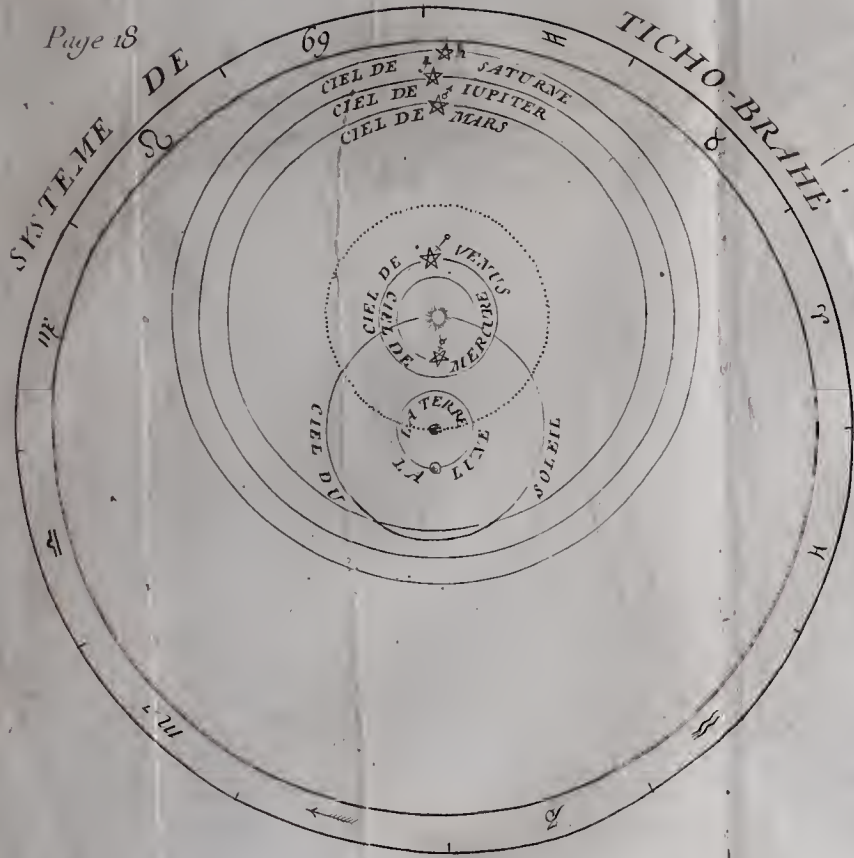 Page 18
SYSTEME DE TICHO-BRAHE
♋ ♊ ♉ ♈ ♓ ♒ ♑ ♐ ♏ ♎ ♍ ♌
♄
CIEL DE SATURNE
♃
CIEL DE IUPITER
♂
CIEL DE MARS
♀
CIEL DE VENUS
CIEL DE MERCURE
☿
LA TERRE
LA LUNE
CIEL DU SOLEIL